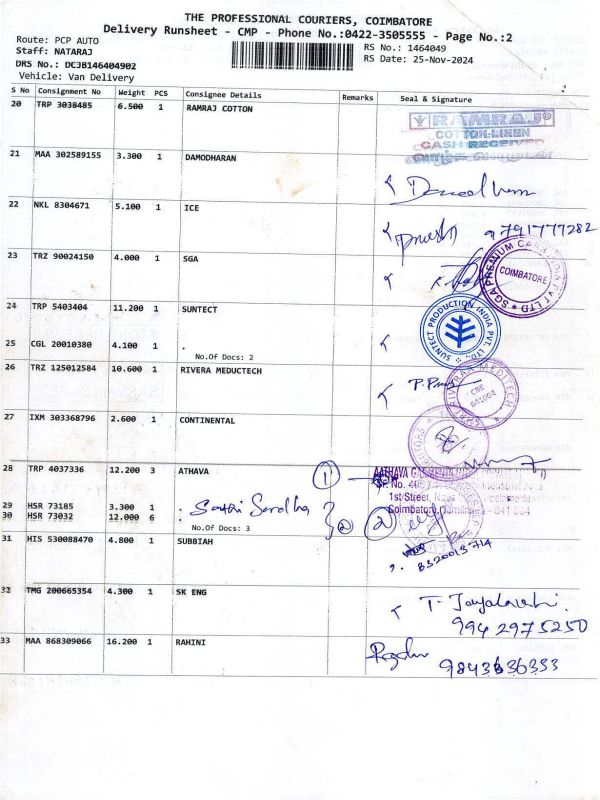 THE PROFESSIONAL COURIERS, COIMBATORE
Delivery Runsheet - CMP - Phone No.:0422-3505555 - Page No.:2
Route: PCP AUTO
Staff: NATARAJ
RS No.: 1464049
DRS No.: DCJB146404902
RS Date: 25-Nov-2024
Vehicle: Van Delivery
S No Consignment No Weight PCS Consignee Details Remarks Seal & Signature
20 TRP 3038485 6.500 1 RAMRAJ COTTON
RAMRAJ
COTTON-LINEN
CASH RECEIVED
21 MAA 302589155 3.300 1 DAMODHARAN
22 NKL 8304671 5.100 1 ICE
9791777282
23 TRZ 90024150 4.000 1 SGA
SGA PREMIUM CARS PVT LTD
COIMBATORE
24 TRP 5403404 11.200 1 SUNTECT
SUNTECT PRODUCTION INDIA PVT. LTD.
25 CGL 20010380 4.100 1 .
No.Of Docs: 2
26 TRZ 125012584 10.600 1 RIVERA MEDUCTECH
RIVERA MEDITECH
CBE
641004
27 IXM 303368796 2.600 1 CONTINENTAL
28 TRP 4037336 12.200 3 ATHAVA
1
1st Street,
Coimbatore, Tamilnadu - 641 004
29 HSR 73185 3.300 1 .
30 HSR 73032 12.000 6 .
2 2
No.Of Docs: 3
31 HIS 530088470 4.800 1 SUBBIAH
32 TMG 200665354 4.300 1 SK ENG
9942975250
33 MAA 868309066 16.200 1 RAHINI
9843636333